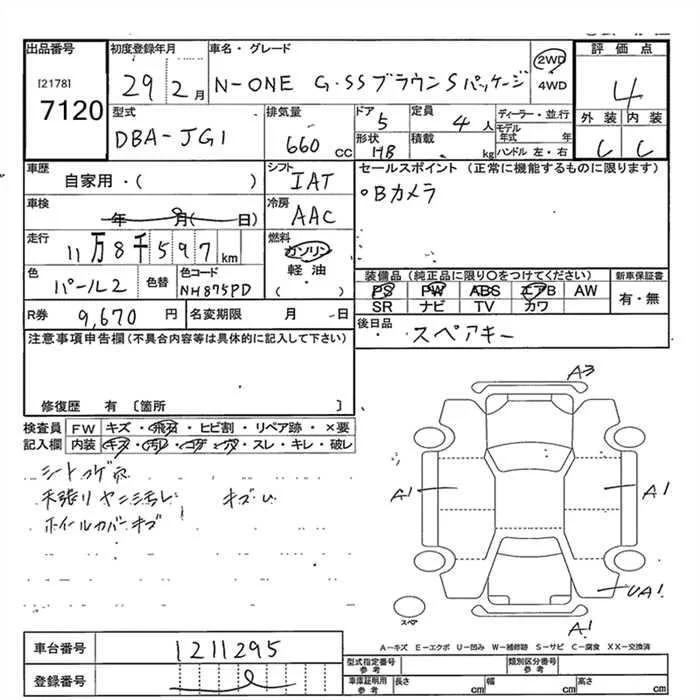 出品番号
[2178]
7120
初度登録年月
29年2月
車名・グレード
N-ONE G・SSブラウンSパッケージ
2WD
4WD
評価点
4
外装 内装
C C
型式
DBA-JG1
排気量
660 cc
ドア
5
形状
HB
定員
4人
積載
kg
ディーラー・並行
モデル年式 年
ハンドル 左・右
車歴
自家用・( )
シフト
IAT
セールスポイント (正常に機能するものに限ります)
◦Bカメラ
車検
年 月( 日)
冷房
AAC
走行
11万8千597km
燃料
ガソリン
軽油
( )
色
パール2
色替
色コード
NH875PD
装備品(純正品に限り〇をつけてください)
PS PW ABS エアB AW
SR ナビ TV カワ
新車保証書
有・無
R券
9,670円
名変期限 月 日
後日品
スペアキー
注意事項申告欄(不具合内容等は具体的に記入して下さい)
修復歴 有 〔箇所 〕
検査員記入欄
FW キズ・飛石・ヒビ割・リペア跡・×要
内装 キズ・汚レ・コゲ・穴・スレ・キレ・破レ
シートコゲ穴
天張りヤニ汚レ キズU
ホイールカバーキズ
A3
A1
A1
UA1
A1
スペア
A-キズ E-エクボ U-凹み W-補修跡 S-サビ C-腐食 XX-交換済
車台番号
1211295
登録番号
型式指定番号 参考
類別区分番号 参考
車庫証明用 参考
長さ cm 幅 cm 高さ cm